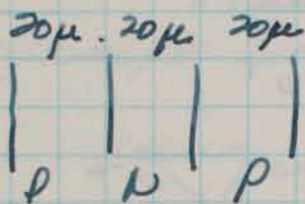 20μ. 20μ 20μ
P N P